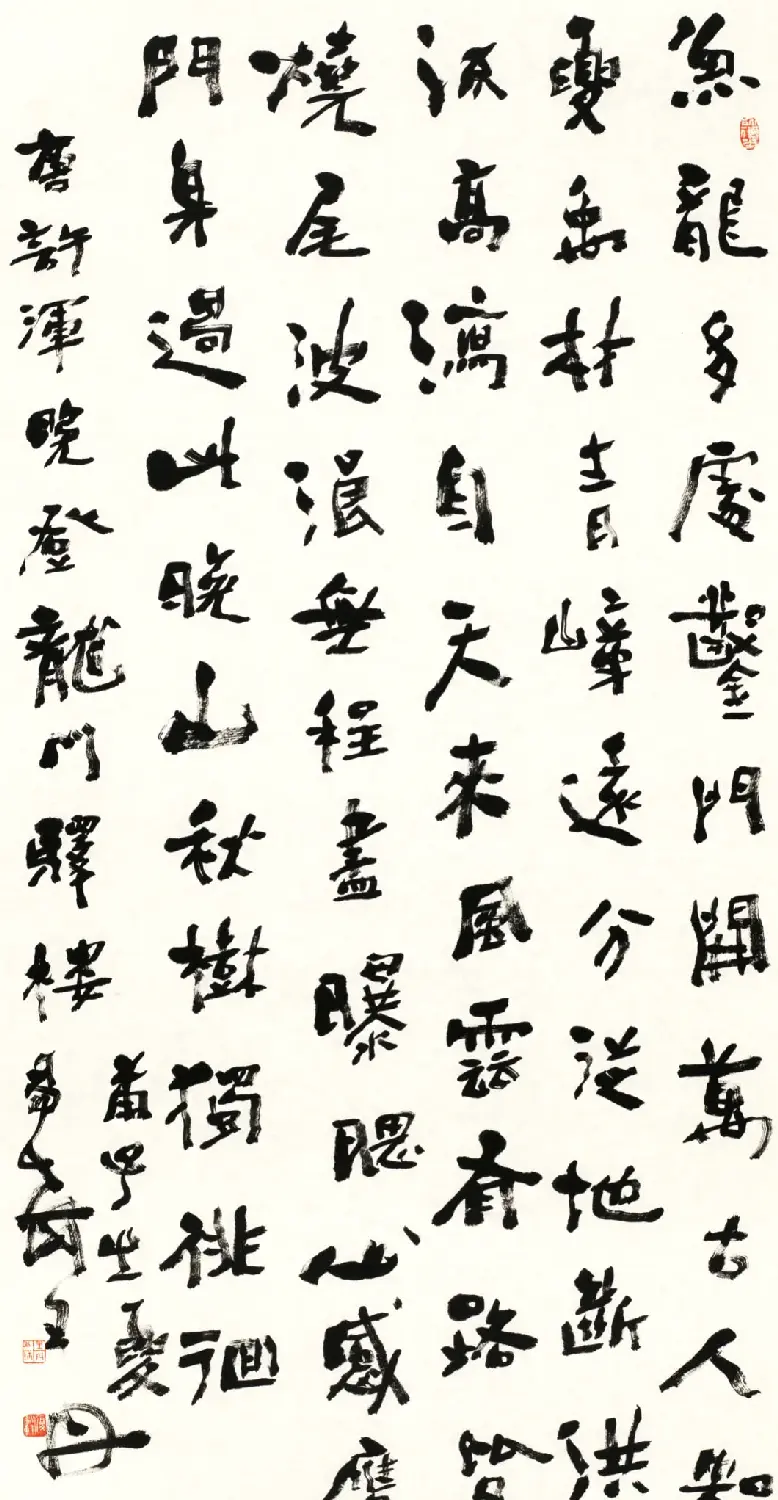 魚龍多處鑿門開萬古人知
夔禹材青嶂遠分從地斷洪
流高瀉自天來風雲有路皆
燒尾波浪無程盡曝腮心感膺
門身過此晚山秋樹獨徘徊
唐許渾晚登龍門驛樓
夏
王丹